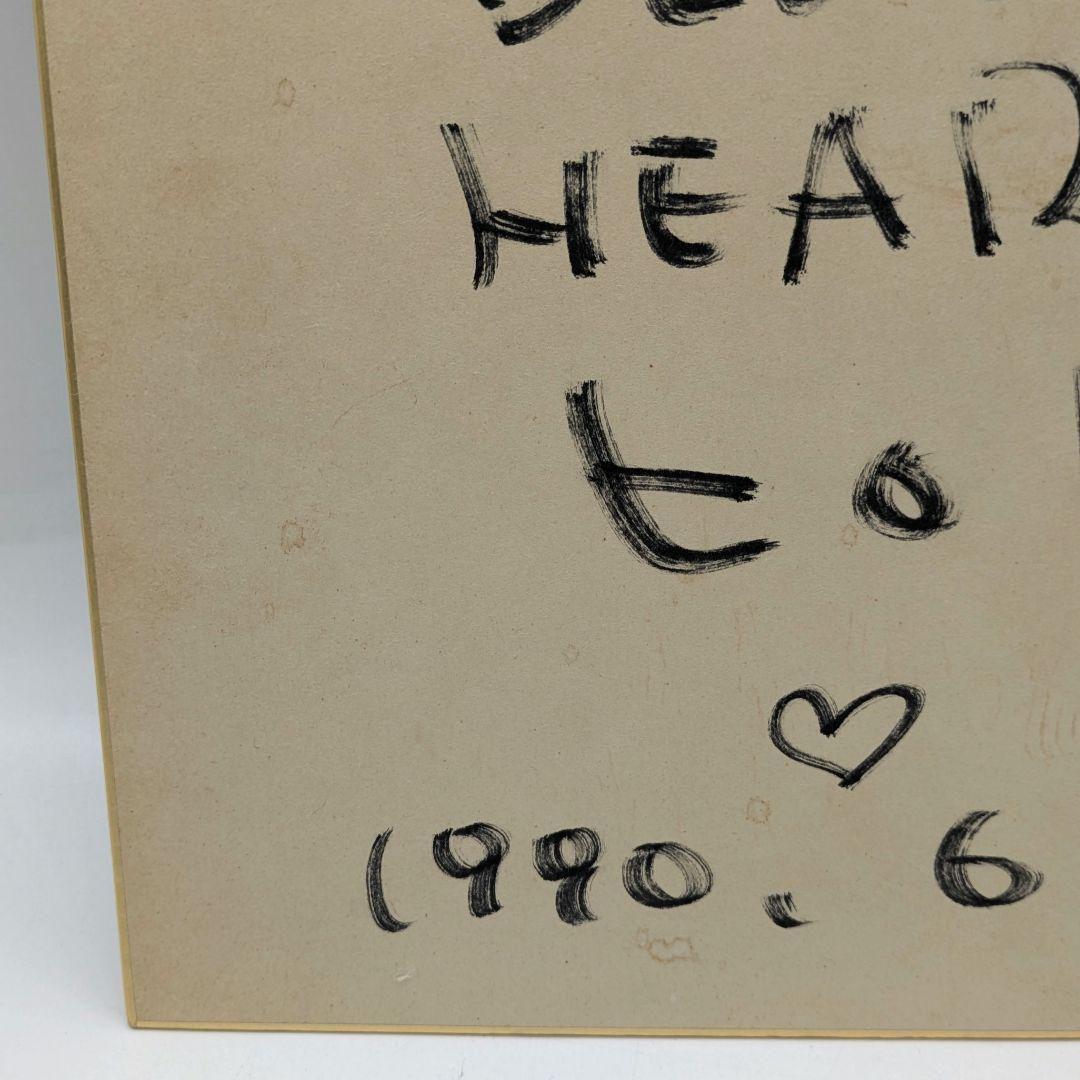 HEAR
to
♡
1990. 6